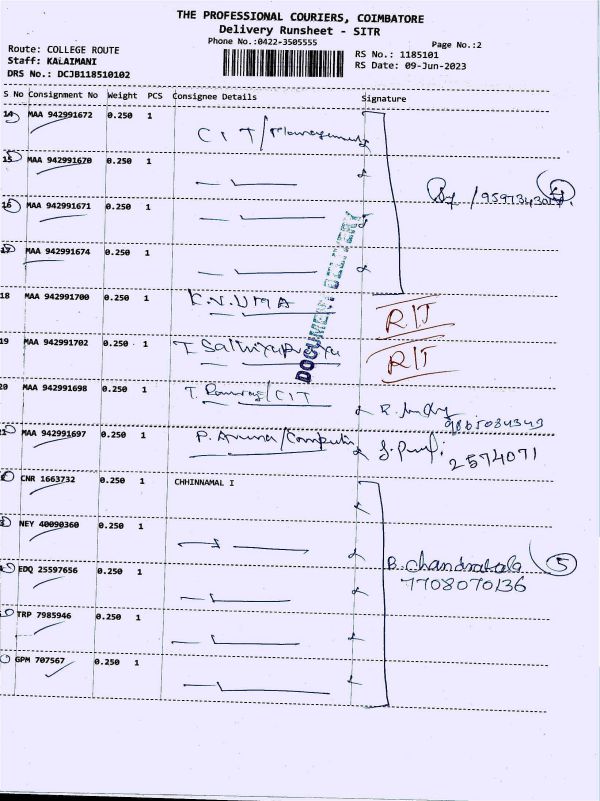 THE PROFESSIONAL COURIERS, COIMBATORE
Delivery Runsheet - SITR
Phone No.:0422-3505555
Page No.:2
Route: COLLEGE ROUTE
Staff: KALAIMANI
DRS No.: DCJB118510102
RS No.: 1185101
RS Date: 09-Jun-2023
S No Consignment No Weight PCS Consignee Details Signature
14 MAA 942991672 0.250 1 CIT/Management
15 MAA 942991670 0.250 1
16 MAA 942991671 0.250 1
4
17 MAA 942991674 0.250 1
DOCUMENT DELIVERY
18 MAA 942991700 0.250 1 K.V. UMA RIT
19 MAA 942991702 0.250 1 T. RIT
20 MAA 942991698 0.250 1 T. /CIT R.
MAA 942991697 0.250 1 P. /Computer
2574071
CNR 1663732 0.250 1 CHHINNAMAL I
NEY 40090360 0.250 1
B. Chandrakala 5
EDQ 25597656 0.250 1 7708070136
TRP 7985946 0.250 1
GPM 707567 0.250 1